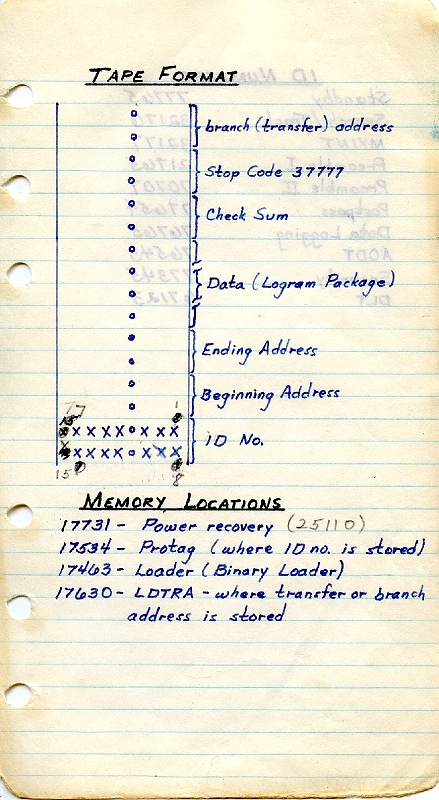 TAPE FORMAT
branch (transfer) address
Stop Code 37777
Check Sum
Data (Logram Package)
Ending Address
Beginning Address
7 1
X X X X X X X
ID No.
X X X X X X X
15 8
MEMORY LOCATIONS
17731 - Power recovery (25110)
17534 - Protag (where ID no. is stored)
17463 - Loader (Binary Loader)
17630 - LDTRA - where transfer or branch
address is stored